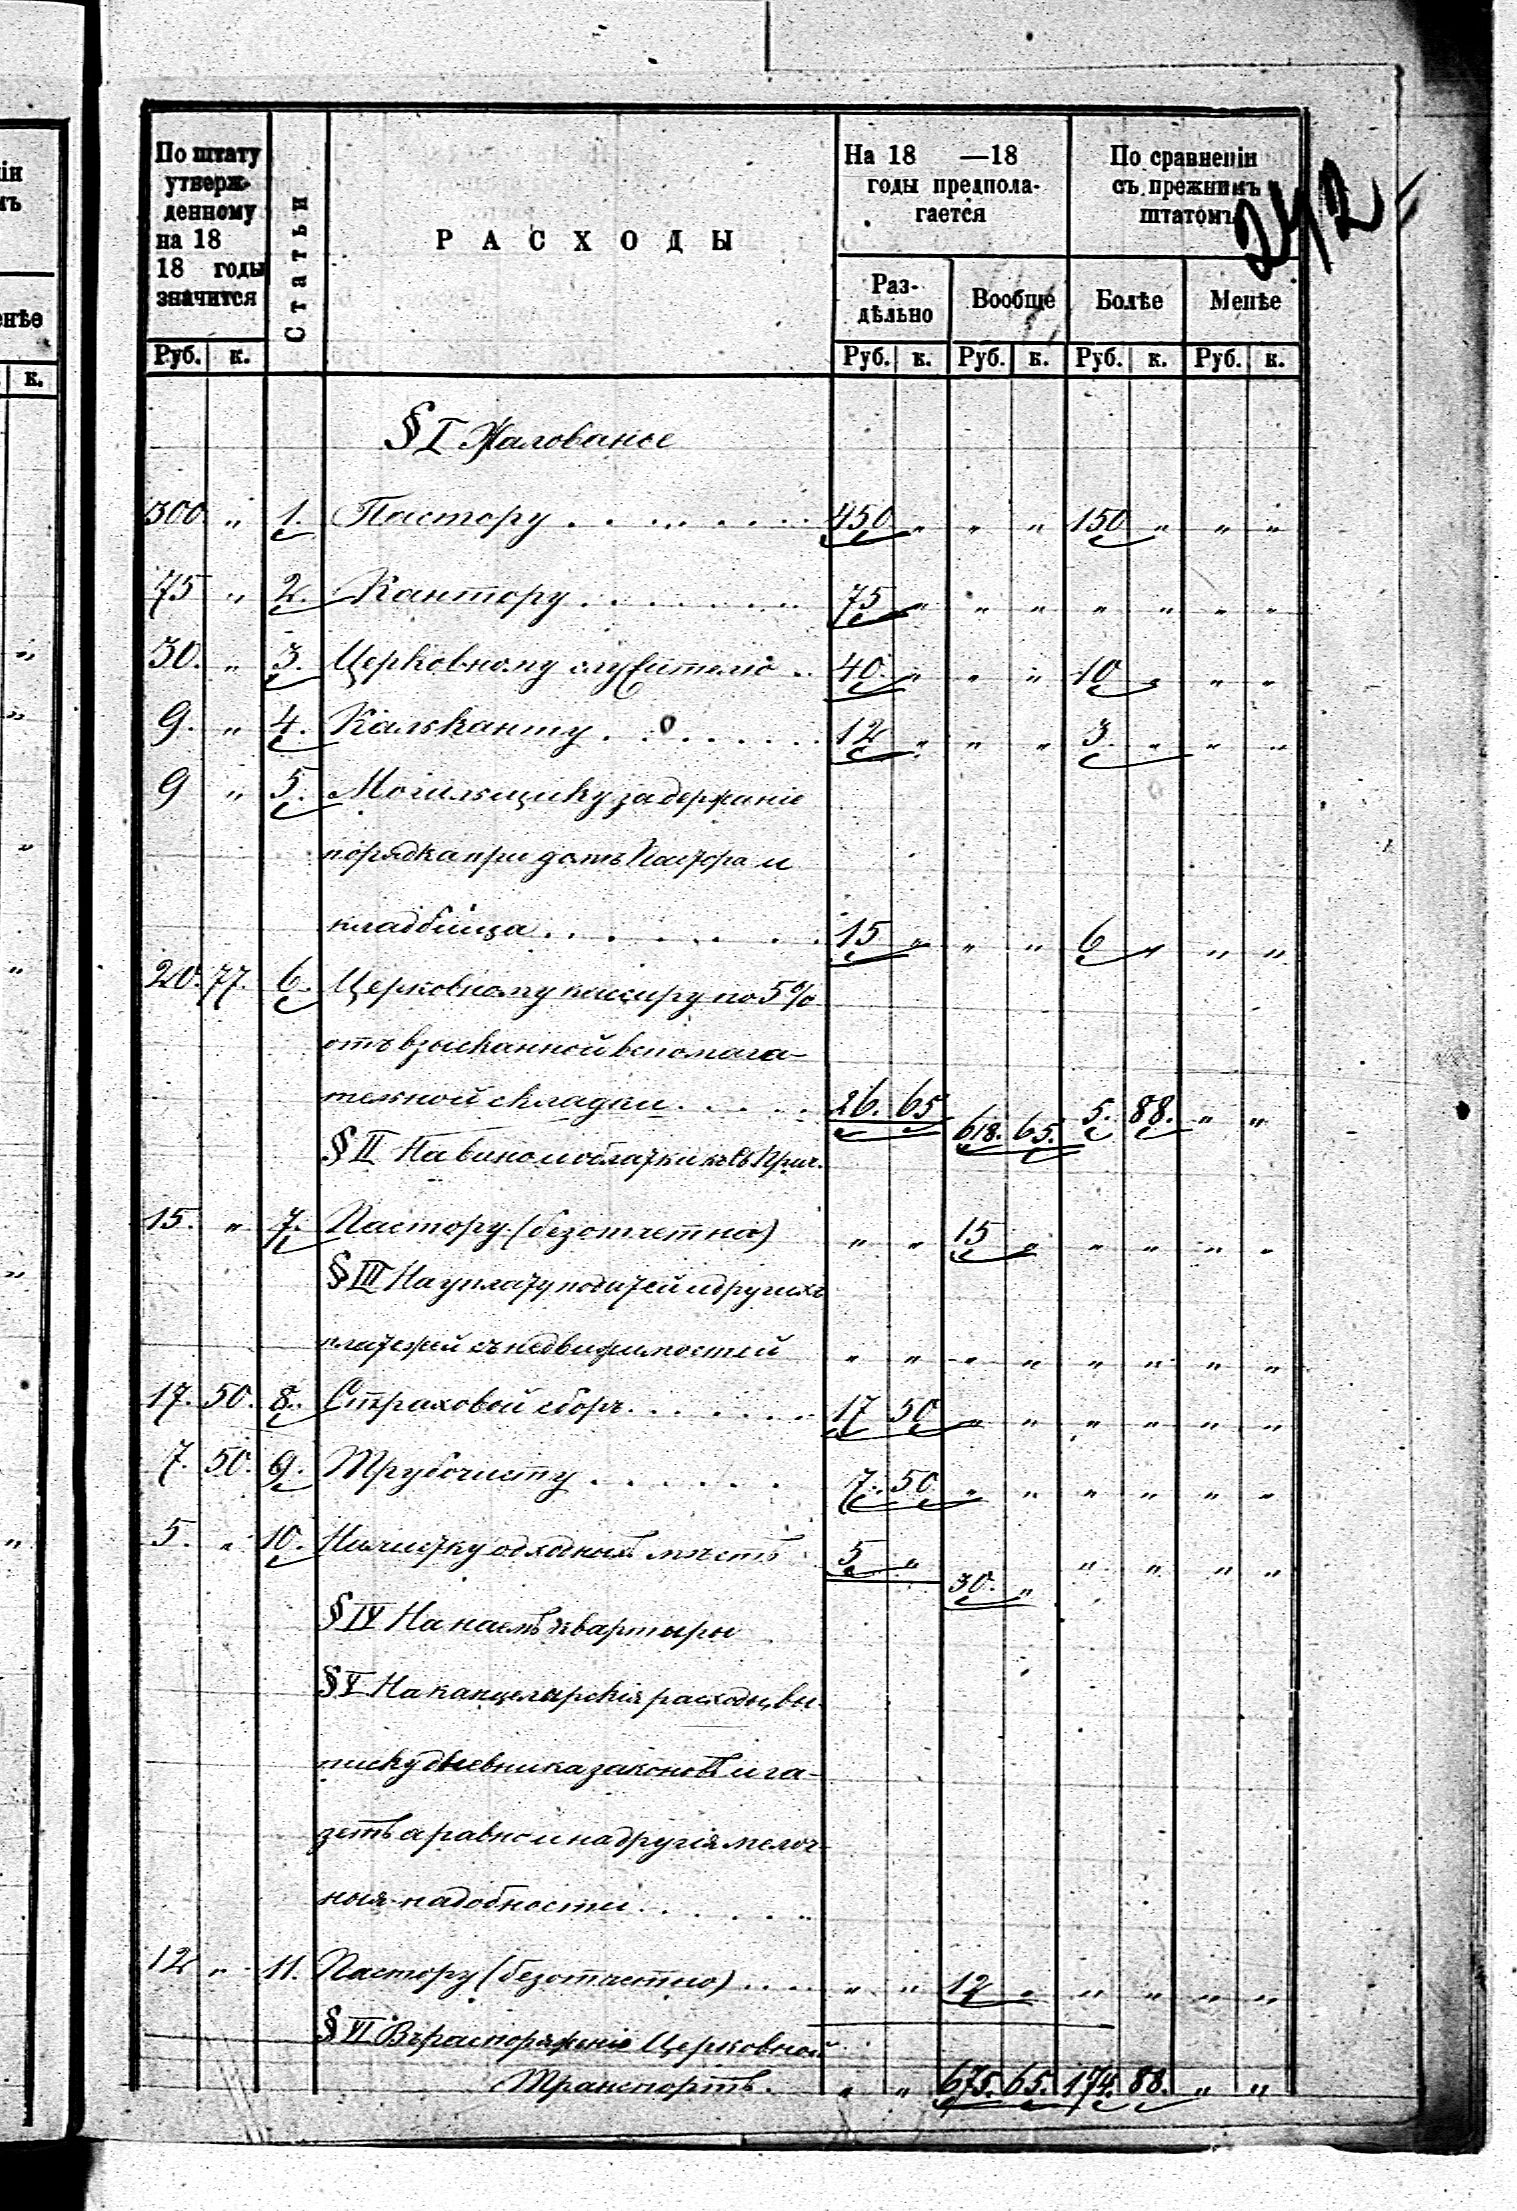 242
По штату утверж-денному на 18 18 годы значится
Статьи
РАСХОДЫ
На 18 —18 годы предпола-гается
По сравненiи съ прежнимъ штатомъ
Раз-дѣльно
Вообще
Болѣе
Менѣе
Руб. к. Руб. к. Руб. к. Руб. к. Руб. к.
§ I Жалованье
300 „ 1. Пастору . . . . . . . 450 „ „ „ 150 „ „ „
75 „ 2. Кантору . . . . . . . 75 „ „ „ „ „ „ „
30. „ 3. Церковному служителю . . 40. „ „ „ 10 „ „ „
9. „ 4. Кальканту . . . . . . . 12 „ „ „ 3. „ „ „
9 „ 5. Могильщику за держанiе
порядка при домѣ Пастора и
кладбища . . . . . . . 15 „ „ „ 6 „ „ „
20. 77. 6. Церковному кассиру по 5%
отъ взысканной вспомага-
тельной складки . . . . . 26. 65 618. 65. 5. 88. „ „
§ II На вино и облатки къ Св. Прич.
15. „ 7. Пастору (безотчетно) „ „ 15 „ „ „ „ „
§ III На уплату податей и другихъ
платежей съ недвижимостей „ „ „ „ „ „ „ „
17. 50. 8. Страховой сборъ . . . . . . 17 50 „ „ „ „ „ „
7. 50. 9. Трубочисту . . . . . . 7. 50 „ „ „ „ „ „
5. „ 10. На чистку отхожихъ мѣстъ 5 „ 30. „ „ „ „ „
§ IV На наемъ квартиры
§ V На канцелярскiя расходы, вы-
писку дневника законовъ и га-
зетъ а равно и на другiя мелоч-
ныя надобности . . . . . .
12 „ 11. Пастору (безотчетно) . . . . „ „ 12 „ „ „ „ „
§ VI Въ распоряженiе Церковной
Транспортъ. „ „ 675. 65. 174. 88. „ „
iи
мъ
енѣе
к.